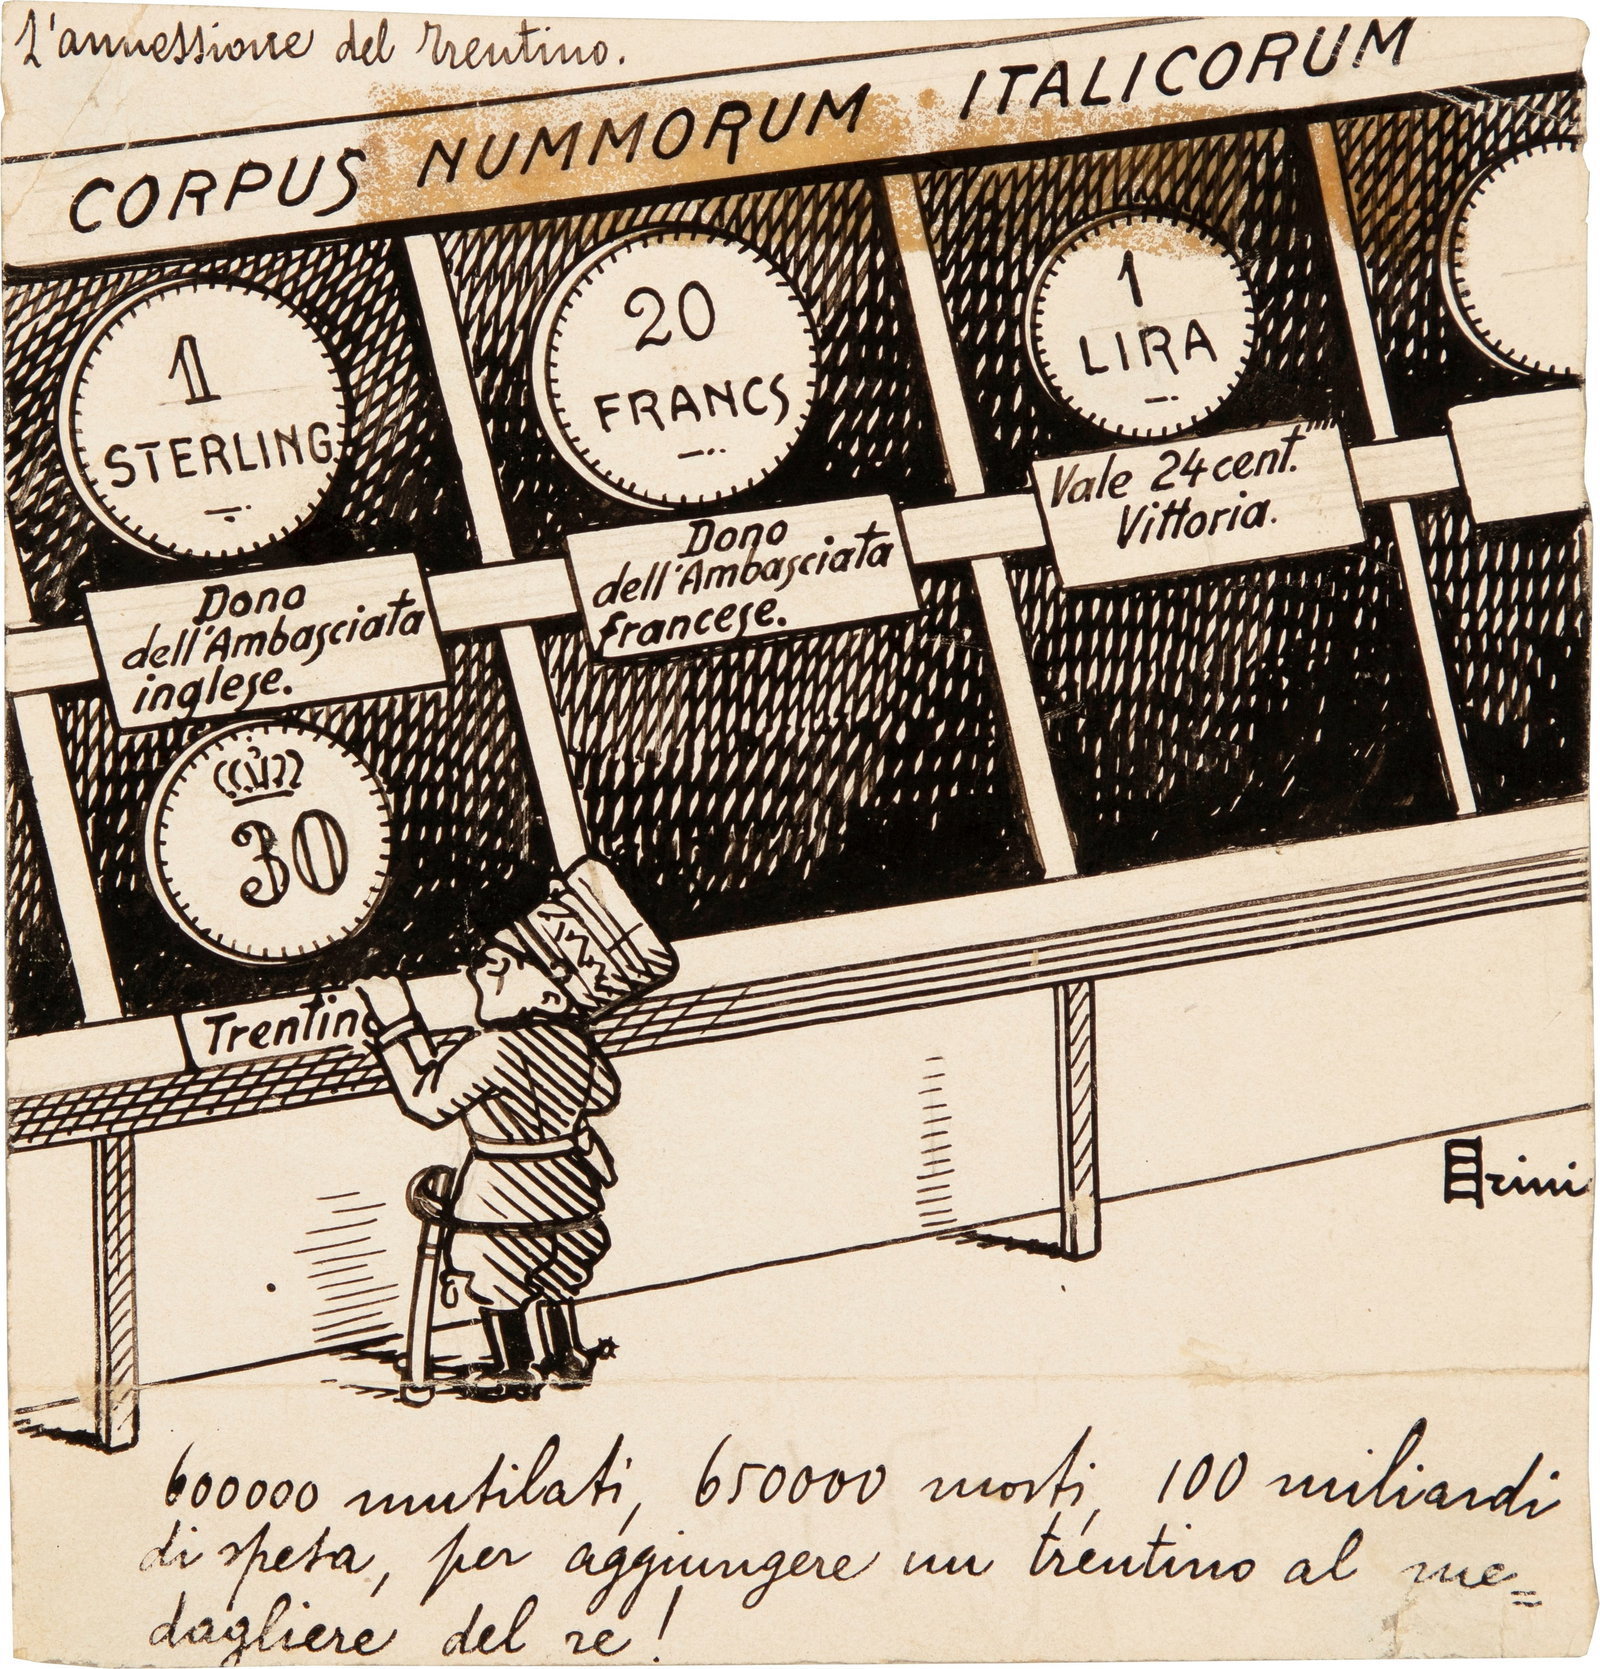 L'annessione del Trentino.
CORPUS NUMMORUM ITALICORUM
1
STERLING
20
FRANCS
1
LIRA
Dono
dell'Ambasciata
inglese.
Dono
dell'Ambasciata
francese.
Vale 24 cent.mi
Vittoria.
30
Trentino
600000 mutilati, 650000 morti, 100 miliardi
di spesa, per aggiungere un trentino al me=
dagliere del re!